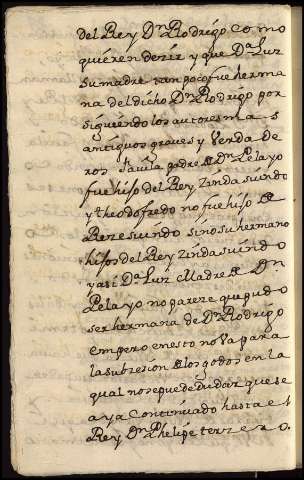 del Rey Dn Rodrigo como
quieren dezir y que Da Luz
su madre tan poco fue herma
na del dicho Dn Rodrigo por
siguiendo los autores mas
antiguos graves y Verdade
ros favila padre de Dn Pelayo
fue hijo del Rey Zindasuindo
y theodofredo no fue hijo de
Rezesuindo sino su hermano
hijo del Rey Zindasuindo
y asi Da Luz Madre de Dn
Pelayo no pareze que pudo
ser hermana de Dn Rodrigo
empero en esto no Va para
la subzesion de los godos en la
qual no se puede dudar que se
aya Continuado hasta el
Rey Dn Phelipe terzero.